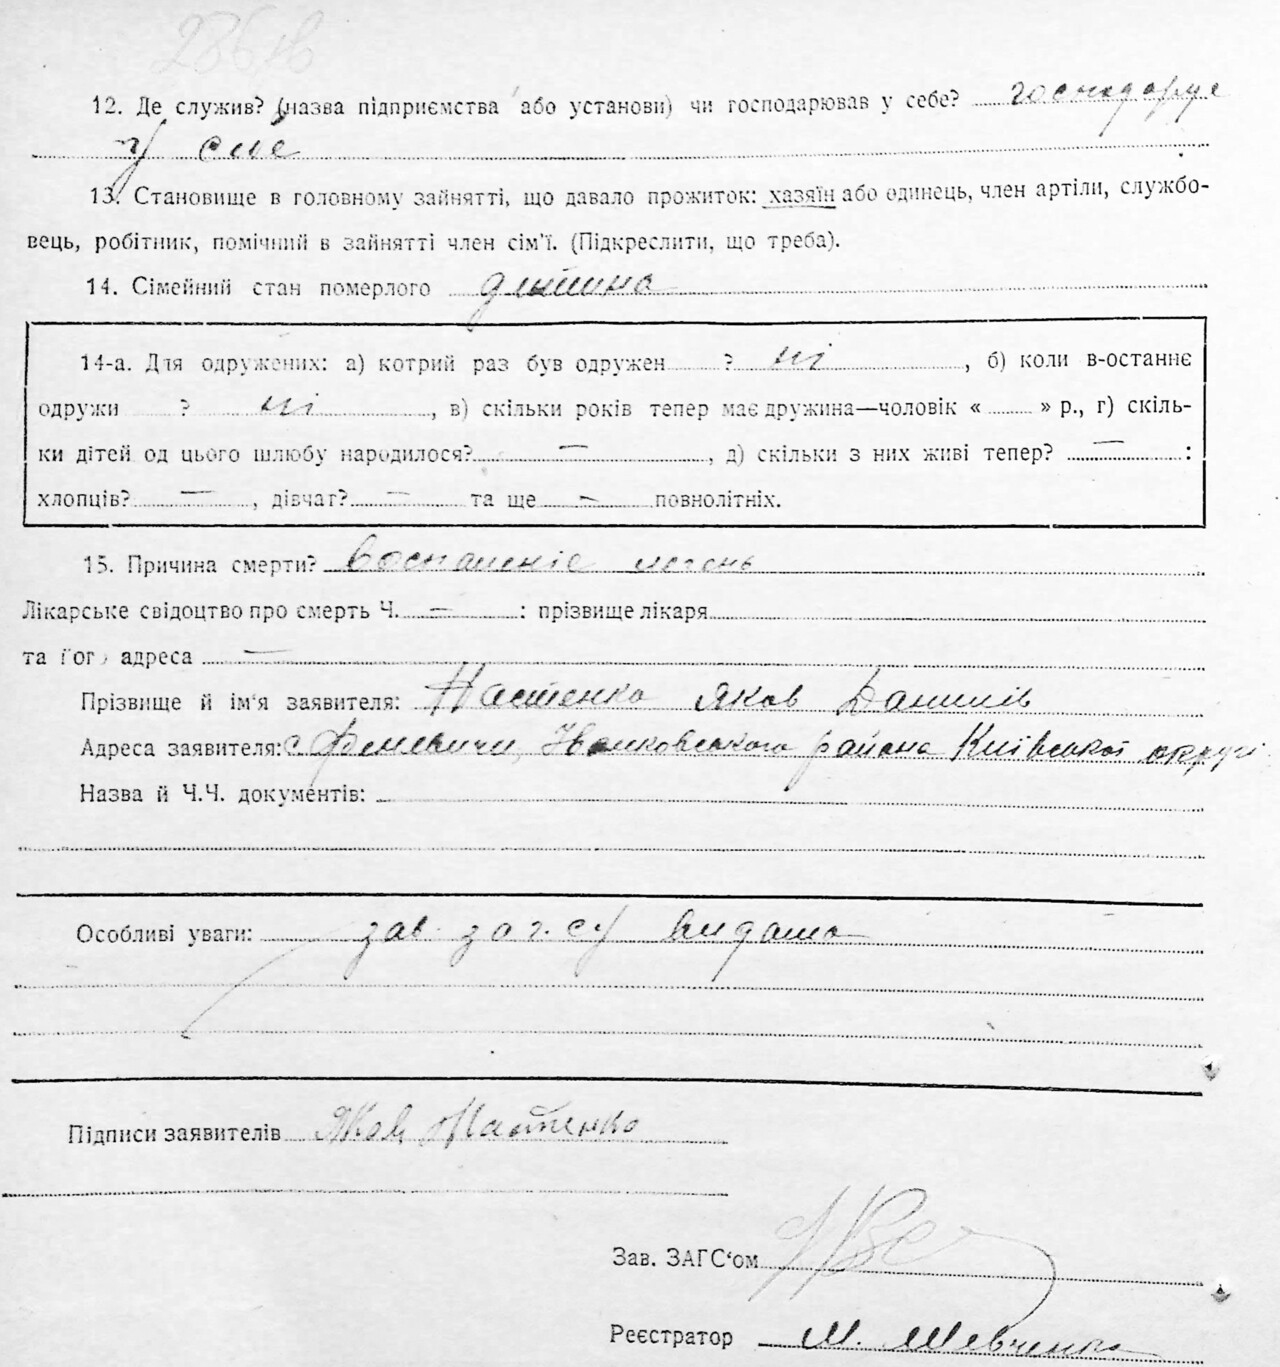 12. Де служив? (назва підприємства або установи) чи господарював у себе? господарує
у себе
13. Становище в головному зайнятті, що давало прожиток: хазяїн або одинець, член артіли, службо-
вець, робітник, помічний в зайнятті член сім'ї. (Підкреслити, що треба).
14. Сімейний стан померлого дитина
14-а. Для одружених: а) котрий раз був одружен ? ні , б) коли в-останнє
одружи ? ні , в) скільки років тепер має дружина—чоловік « » р., г) скіль-
ки дітей од цього шлюбу народилося? — , д) скільки з них живі тепер? — :
хлопців? — , дівчат? — та ще — повнолітніх.
15. Причина смерти? Воспаленіе легень
Лікарське свідоцтво про смерть Ч. — : прізвище лікаря
та його адреса —
Прізвище й ім'я заявителя: Настенко Яков Данилів
Адреса заявителя: с. Феневичи, Іванковського района Київської округі
Назва й Ч.Ч. документів:
Особливі уваги: зав. загсу
Підписи заявителів Яков Настенко
Зав. ЗАГС'ом
Реєстратор М. Шевченко